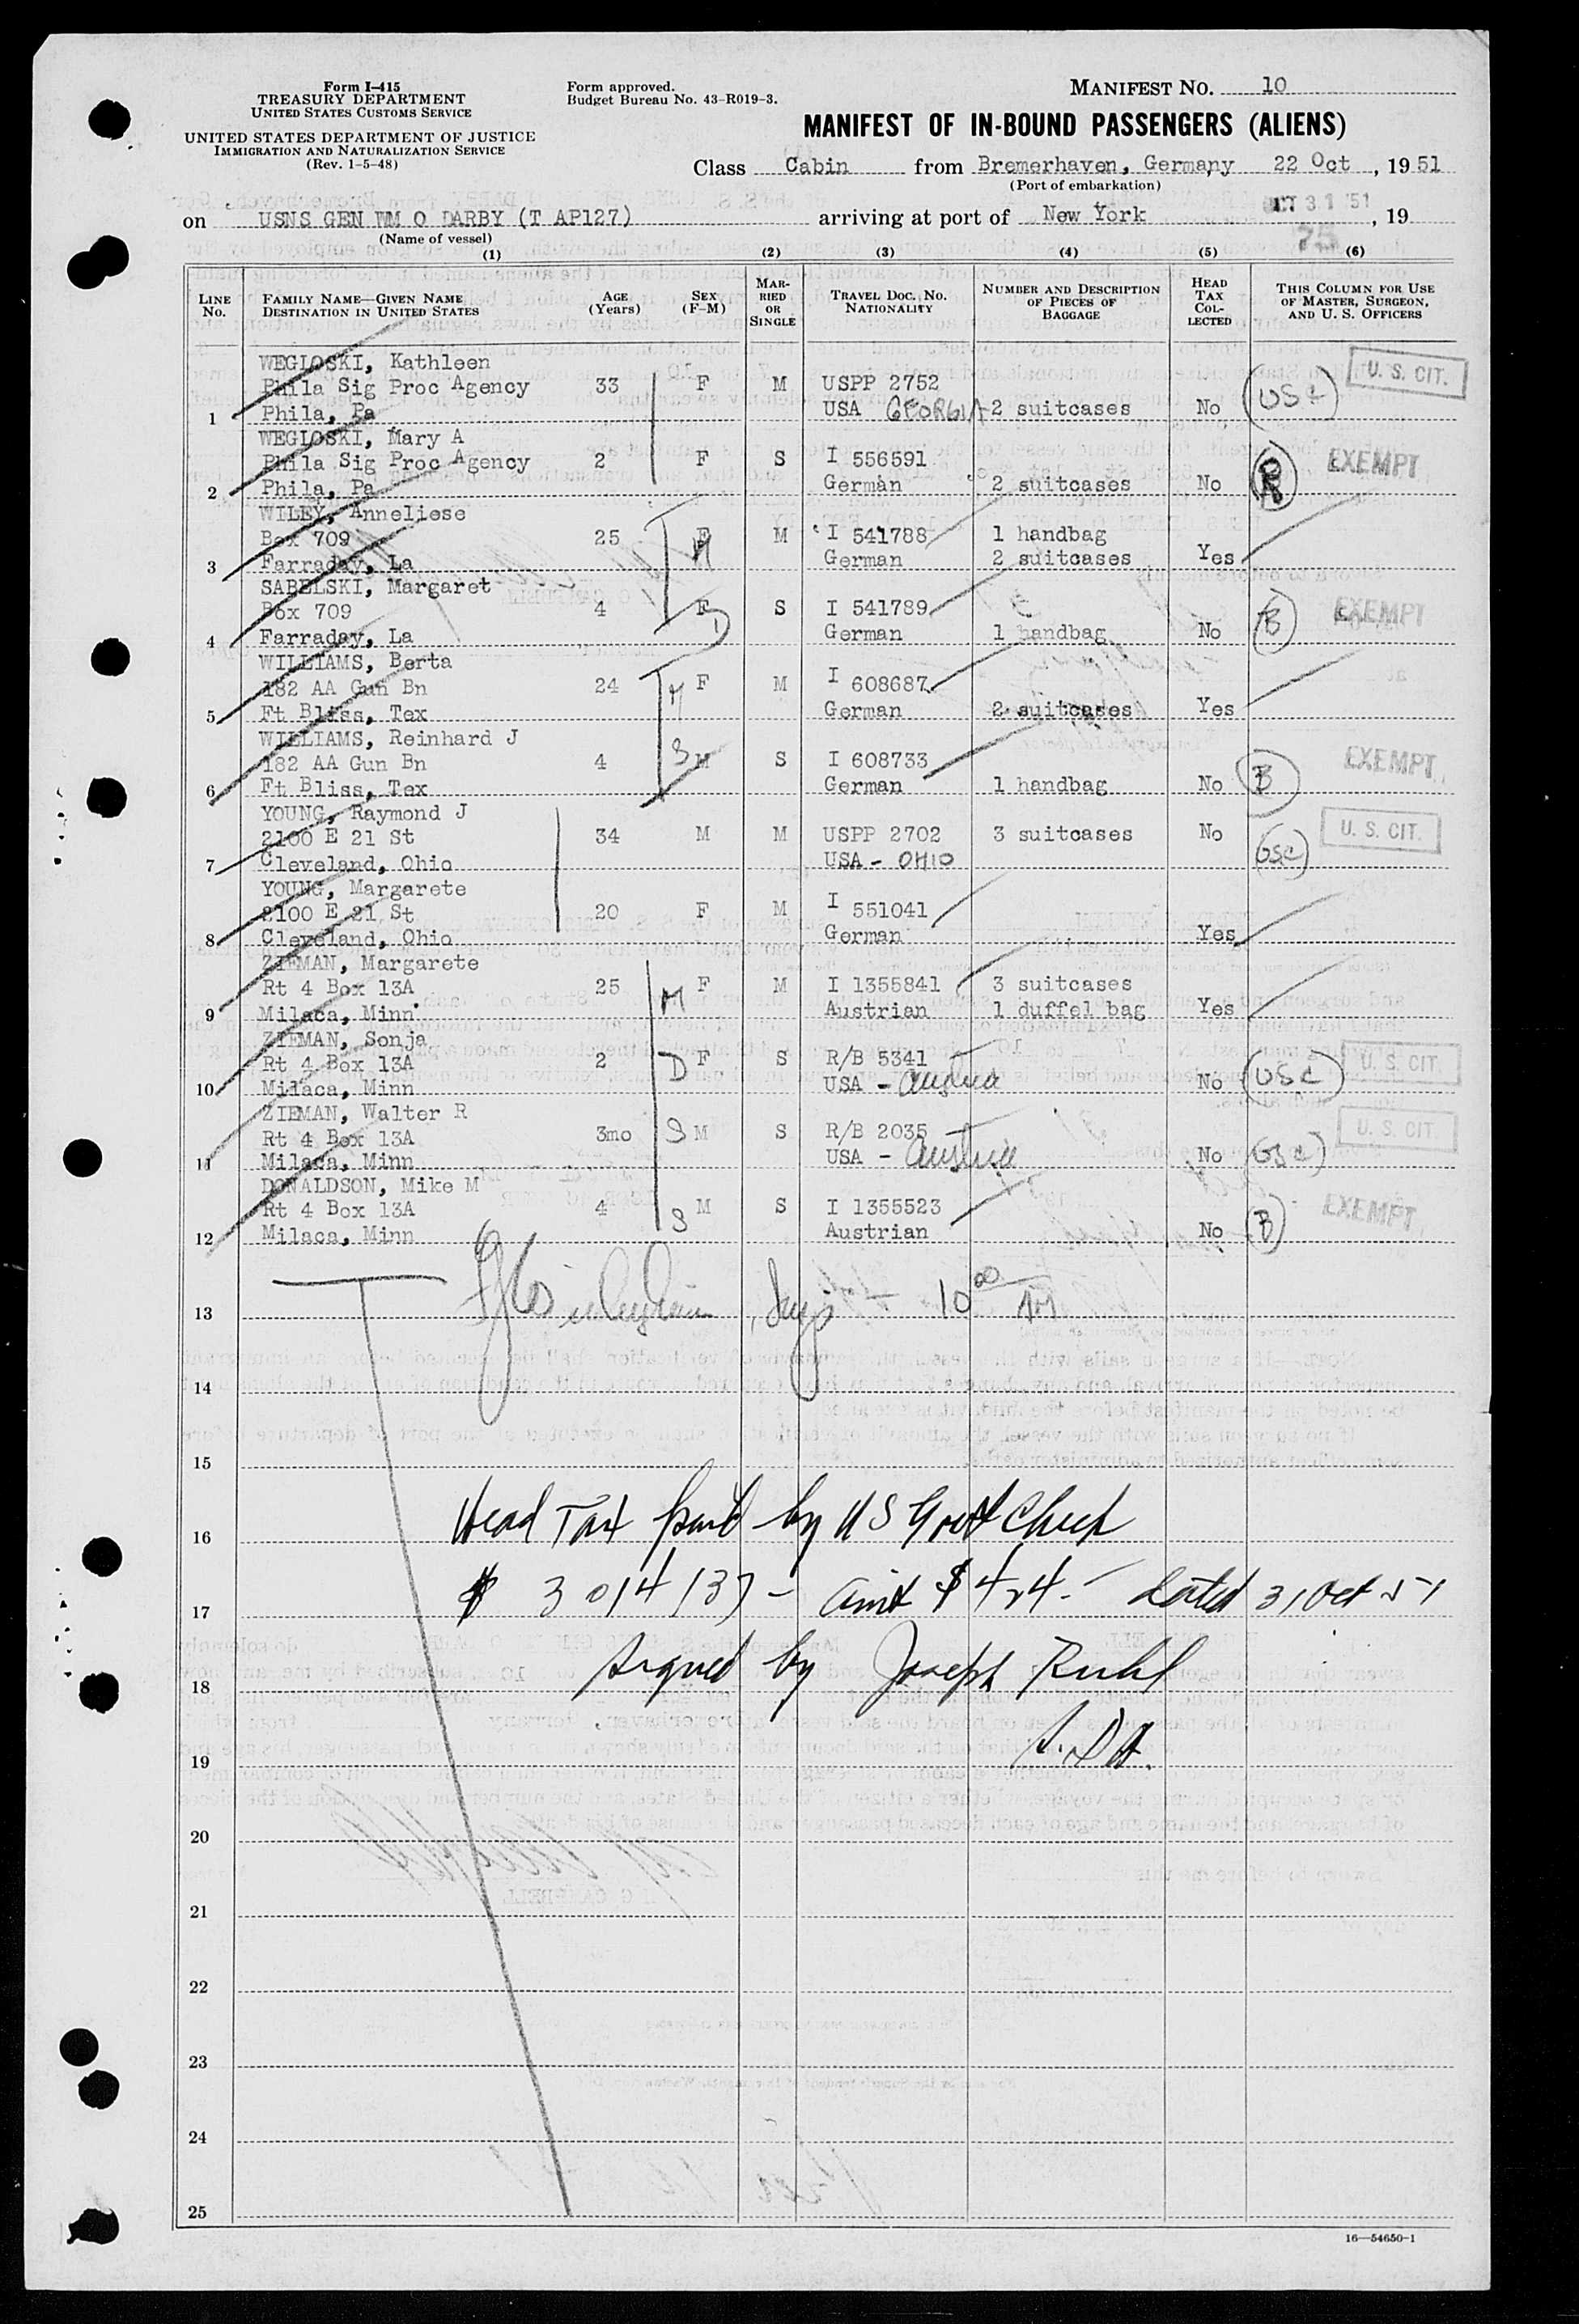 Form I-415
TREASURY DEPARTMENT
UNITED STATES CUSTOMS SERVICE
UNITED STATES DEPARTMENT OF JUSTICE
IMMIGRATION AND NATURALIZATION SERVICE
(Rev. 1-5-48)
Form approved.
Budget Bureau No. 43-R019-3.
MANIFEST NO. 10
MANIFEST OF IN-BOUND PASSENGERS (ALIENS)
Class Cabin from Bremerhaven, Germany 22 Oct, 1951
(Port of embarkation)
on USNS GEN WM O DARBY (T AP127) arriving at port of New York OCT 31 '51, 19
(Name of vessel)
75
(1) (2) (3) (4) (5) (6)
LINE No. FAMILY NAME—GIVEN NAME DESTINATION IN UNITED STATES AGE (Years) SEX (F-M) MARRIED OR SINGLE TRAVEL DOC. NO. NATIONALITY NUMBER AND DESCRIPTION OF PIECES OF BAGGAGE HEAD TAX COLLECTED THIS COLUMN FOR USE OF MASTER, SURGEON, AND U. S. OFFICERS
WEGLOSKI, Kathleen
Phila Sig Proc Agency 33 F M USPP 2752 USC U. S. CIT.
1 Phila, Pa USA GEORGIA 2 suitcases No
WEGLOSKI, Mary A
Phila Sig Proc Agency 2 F S I 556591 R EXEMPT
2 Phila, Pa German 2 suitcases No
WILEY, Anneliese
Box 709 25 F M M I 541788 1 handbag
3 Farraday, La German 2 suitcases Yes
SABELSKI, Margaret
Box 709 4 F D S I 541789 B EXEMPT
4 Farraday, La German 1 handbag No
WILLIAMS, Berta
182 AA Gun Bn 24 M F M I 608687
5 Ft Bliss, Tex German 2 suitcases Yes
WILLIAMS, Reinhard J
182 AA Gun Bn 4 S M S I 608733 EXEMPT
6 Ft Bliss, Tex German 1 handbag No B
YOUNG, Raymond J
2100 E 21 St 34 M M USPP 2702 3 suitcases No U. S. CIT.
7 Cleveland, Ohio USA - OHIO USC
YOUNG, Margarete
2100 E 21 St 20 F M I 551041
8 Cleveland, Ohio German Yes
ZIEMAN, Margarete
Rt 4 Box 13A 25 M F M I 1355841 3 suitcases
9 Milaca, Minn Austrian 1 duffel bag Yes
ZIEMAN, Sonja
Rt 4 Box 13A 2 D F S R/B 5341 U. S. CIT.
10 Milaca, Minn USA - Austria No USC
ZIEMAN, Walter R
Rt 4 Box 13A 3mo S M S R/B 2035 U. S. CIT.
11 Milaca, Minn USA - Austria No USC
DONALDSON, Mike M
Rt 4 Box 13A 4 S M S I 1355523 EXEMPT
12 Milaca, Minn Austrian No B
13 10 00 AM
14
15
16 Head Tax paid by US Govt Check
17 $ 3014137 - Amt $ 424. - dated 31 Oct 51
18 Signed by Joseph Ruhl
19
20
21
22
23
24
25
16—54650-1